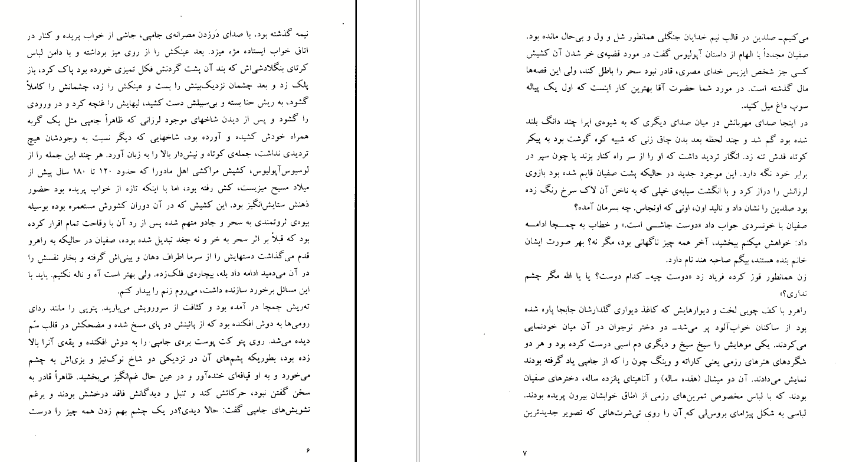 نیمه گذشته بود، با صدای دَرزدن مصرانه‌ی جامپی، جاشی از خواب پریده و کنار در
اتاق خواب ایستاده مژه میزد. بعد عینکش را از روی میز برداشته و با دامن لباس
کرتای بنگلادشی‌اش که بند آن پشت گردنش فکل تمیزی خورده بود پاک کرد، باز
پلک زد و بعد چشمان نزدیک‌بینش را بست و عینکش را زد، چشمانش را کاملاً
گشود، به ریش حنا بسته و بی‌سبیلش دست کشید، لبهایش را غنچه کرد و در ورودی
را گشود و پس از دیدن شاخهای موجود لرزانی که ظاهراً جامپی مثل یک گربه
همراه خودش کشیده و آورده بود، شاخهایی که دیگر نسبت به وجودشان هیچ
تردیدی نداشت، جمله‌ی کوتاه و نیش‌دار بالا را به زبان آورد. هر چند این جمله را از
لوسیوس آپولیوس، کشیش مراکشی اهل مادورا که حدود ۱۲۰ تا ۱۸۰ سال پیش از
میلاد مسیح میزیست، کش رفته بود، اما با اینکه تازه از خواب پریده بود حضور
ذهنش ستایش‌انگیز بود. این کشیش که در آن دوران کشورش مستعمره بوده بوسیله
بیوه‌ی ثروتمندی به سحر و جادو متهم شده پس از رد آن با وقاحت تمام اقرار کرده
بود که قبلاً بر اثر سحر به خر و نه جغد تبدیل شده بوده، صفیان در حالیکه به راهرو
قدم می‌گذاشت دستهایش را از سرما اطراف دهان و بینی‌اش گرفته و بخار نفسش را
در آن می‌دمید ادامه داد بله، بیچاره‌ی فلک‌زده. ولی بهتر است آه و ناله نکنیم. باید با
این مسائل برخورد سازنده داشت، می‌روم زنم را بیدار کنم.
ته‌ریش جمچا در آمده بود و کثافت از سر‌رویش می‌بارید. پتویی را مانند ردای
رومی‌ها به دوش افکنده بود که از پائینش دو پای مسخ شده و مضحکش در قالب سُم
دیده می‌شد. روی پتو کت پوست بره‌ی جامپی را به دوش افکنده و یقه‌ی آنرا بالا
زده بود، بطوریکه پشم‌های آن در نزدیکی دو شاخ نوک‌تیز و بزی‌اش به چشم
می‌خورد و به او قیافه‌ای خنده‌آور و در عین حال غم‌انگیز می‌بخشید. ظاهراً قادر به
سخن گفتن نبود، حرکاتش کند و تنبل و دیدگانش فاقد درخشش بودند و برغم
تشویش‌های جامپی گفت: حالا دیدی؟ در یک چشم بهم زدن همه چیز را درست
۶
می‌کنیم.ـ صلدین در قالب نیم خدایان جنگلی همانطور شل و ول و بی‌حال مانده بود.
صفیان مجدداً با الهام از داستان آپولیوس گفت در مورد قضیه‌ی خر شدن آن کشیش
کسی جز شخص ایزیس خدای مصری، قادر نبود سحر را باطل کند، ولی این قصه‌ها
مال گذشته است. در مورد شما حضرت آقا بهترین کار اینست که اول یک پیاله
سوپ داغ میل کنید.
در اینجا صدای مهربانش در میان صدای دیگری که به شیوه‌ی اپرا چند دانگ بلند
شده بود گم شد و چند لحظه بعد بدن چاق زنی که شبیه کوه گوشت بود به پیکر
کوتاه قدش تنه زد. انگار تردید داشت که او را از سر راه کنار بزند یا چون سپر در
برابر خود نگه دارد. این موجود جدید در حالیکه پشت صفیان قایم شده بود بازوی
لرزانش را دراز کرد و با انگشت سبابه‌ی خپلی که به ناخن آن لاک سرخ رنگ زده
بود صلدین را نشان داد و نالید اون، اونی که اونجاس. چه سرمان آمده؟
صفیان با خونسردی جواب داد «دوست جاشی است.» و خطاب به جمچا ادامه
داد: خواهش میکنم ببخشید. آخر همه چیز ناگهانی بود، مگر نه؟ بهر صورت ایشان
خانم بنده هستند، بیگم صاحبه هند نام دارد.
زن همانطور قوز کرده فریاد زد «دوست چیه‌ـ کدام دوست؟ یا یا الله مگر چشم
نداری؟»
راهرو با کف چوبی لخت و دیوارهایش که کاغذ دیواری گلدارشان جابجا پاره شده
بود از ساکنان خواب‌آلود پر می‌شد.ـ دو دختر نوجوان در آن میان خودنمایی
می‌کردند. یکی موهایش را سیخ سیخ و دیگری دم اسبی درست کرده بود و هر دو
شگردهای هنرهای رزمی یعنی کاراته و وینگ چون را که از جامپی یاد گرفته بودند
نمایش می‌دادند. آن دو میشال (هفده ساله) و آناهیتای پانزده ساله، دخترهای صفیان
بودند که با لباس مخصوص تمرین‌های رزمی از اطاق خوابشان بیرون پریده بودند.
لباسی به شکل پیژامای بروس‌لی که آن را روی تی‌شرت‌هائی که تصویر جدیدترین
۷